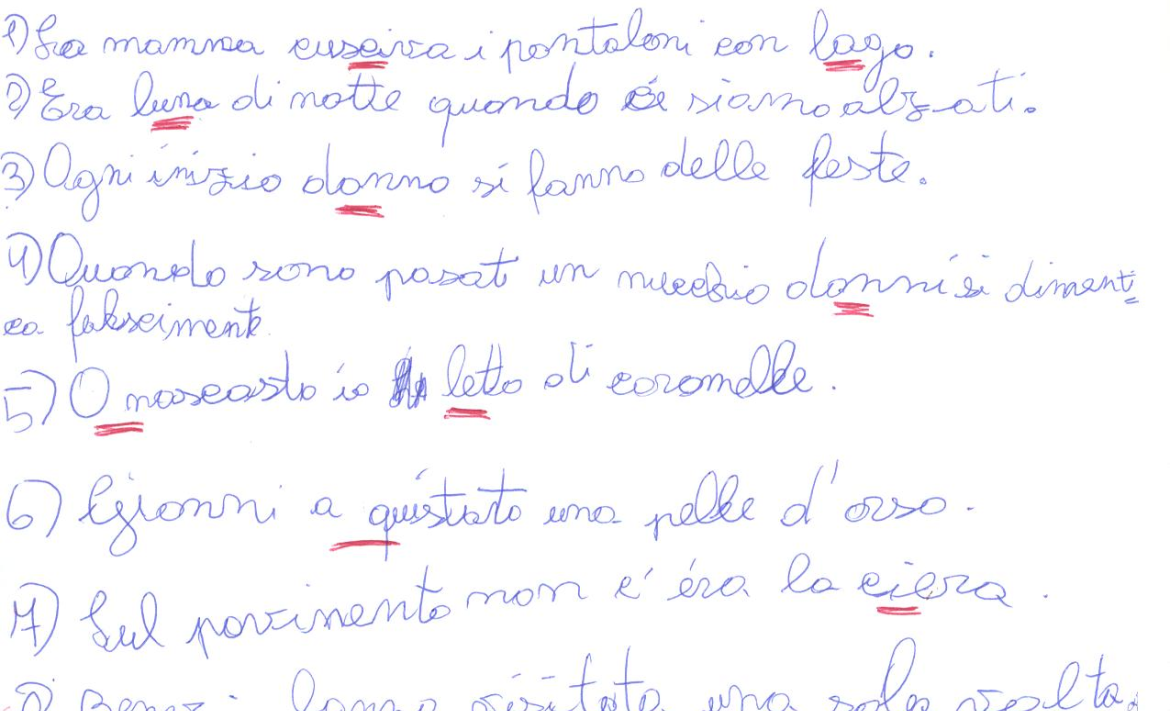 1) La mamma cuseiva i pantaloni con lago.
2) Era luna di notte quando ci siamo alzati.
3) Ogni inizio danno si fanno delle feste.
4) Quando sono pasat un mucchio danni si diment
ca
5) O mascasto io letto di caromelle.
6) Gionni a quistato una pelle d'orso.
7) Sul pavimento non c'éra la ciera.
una sola volta.